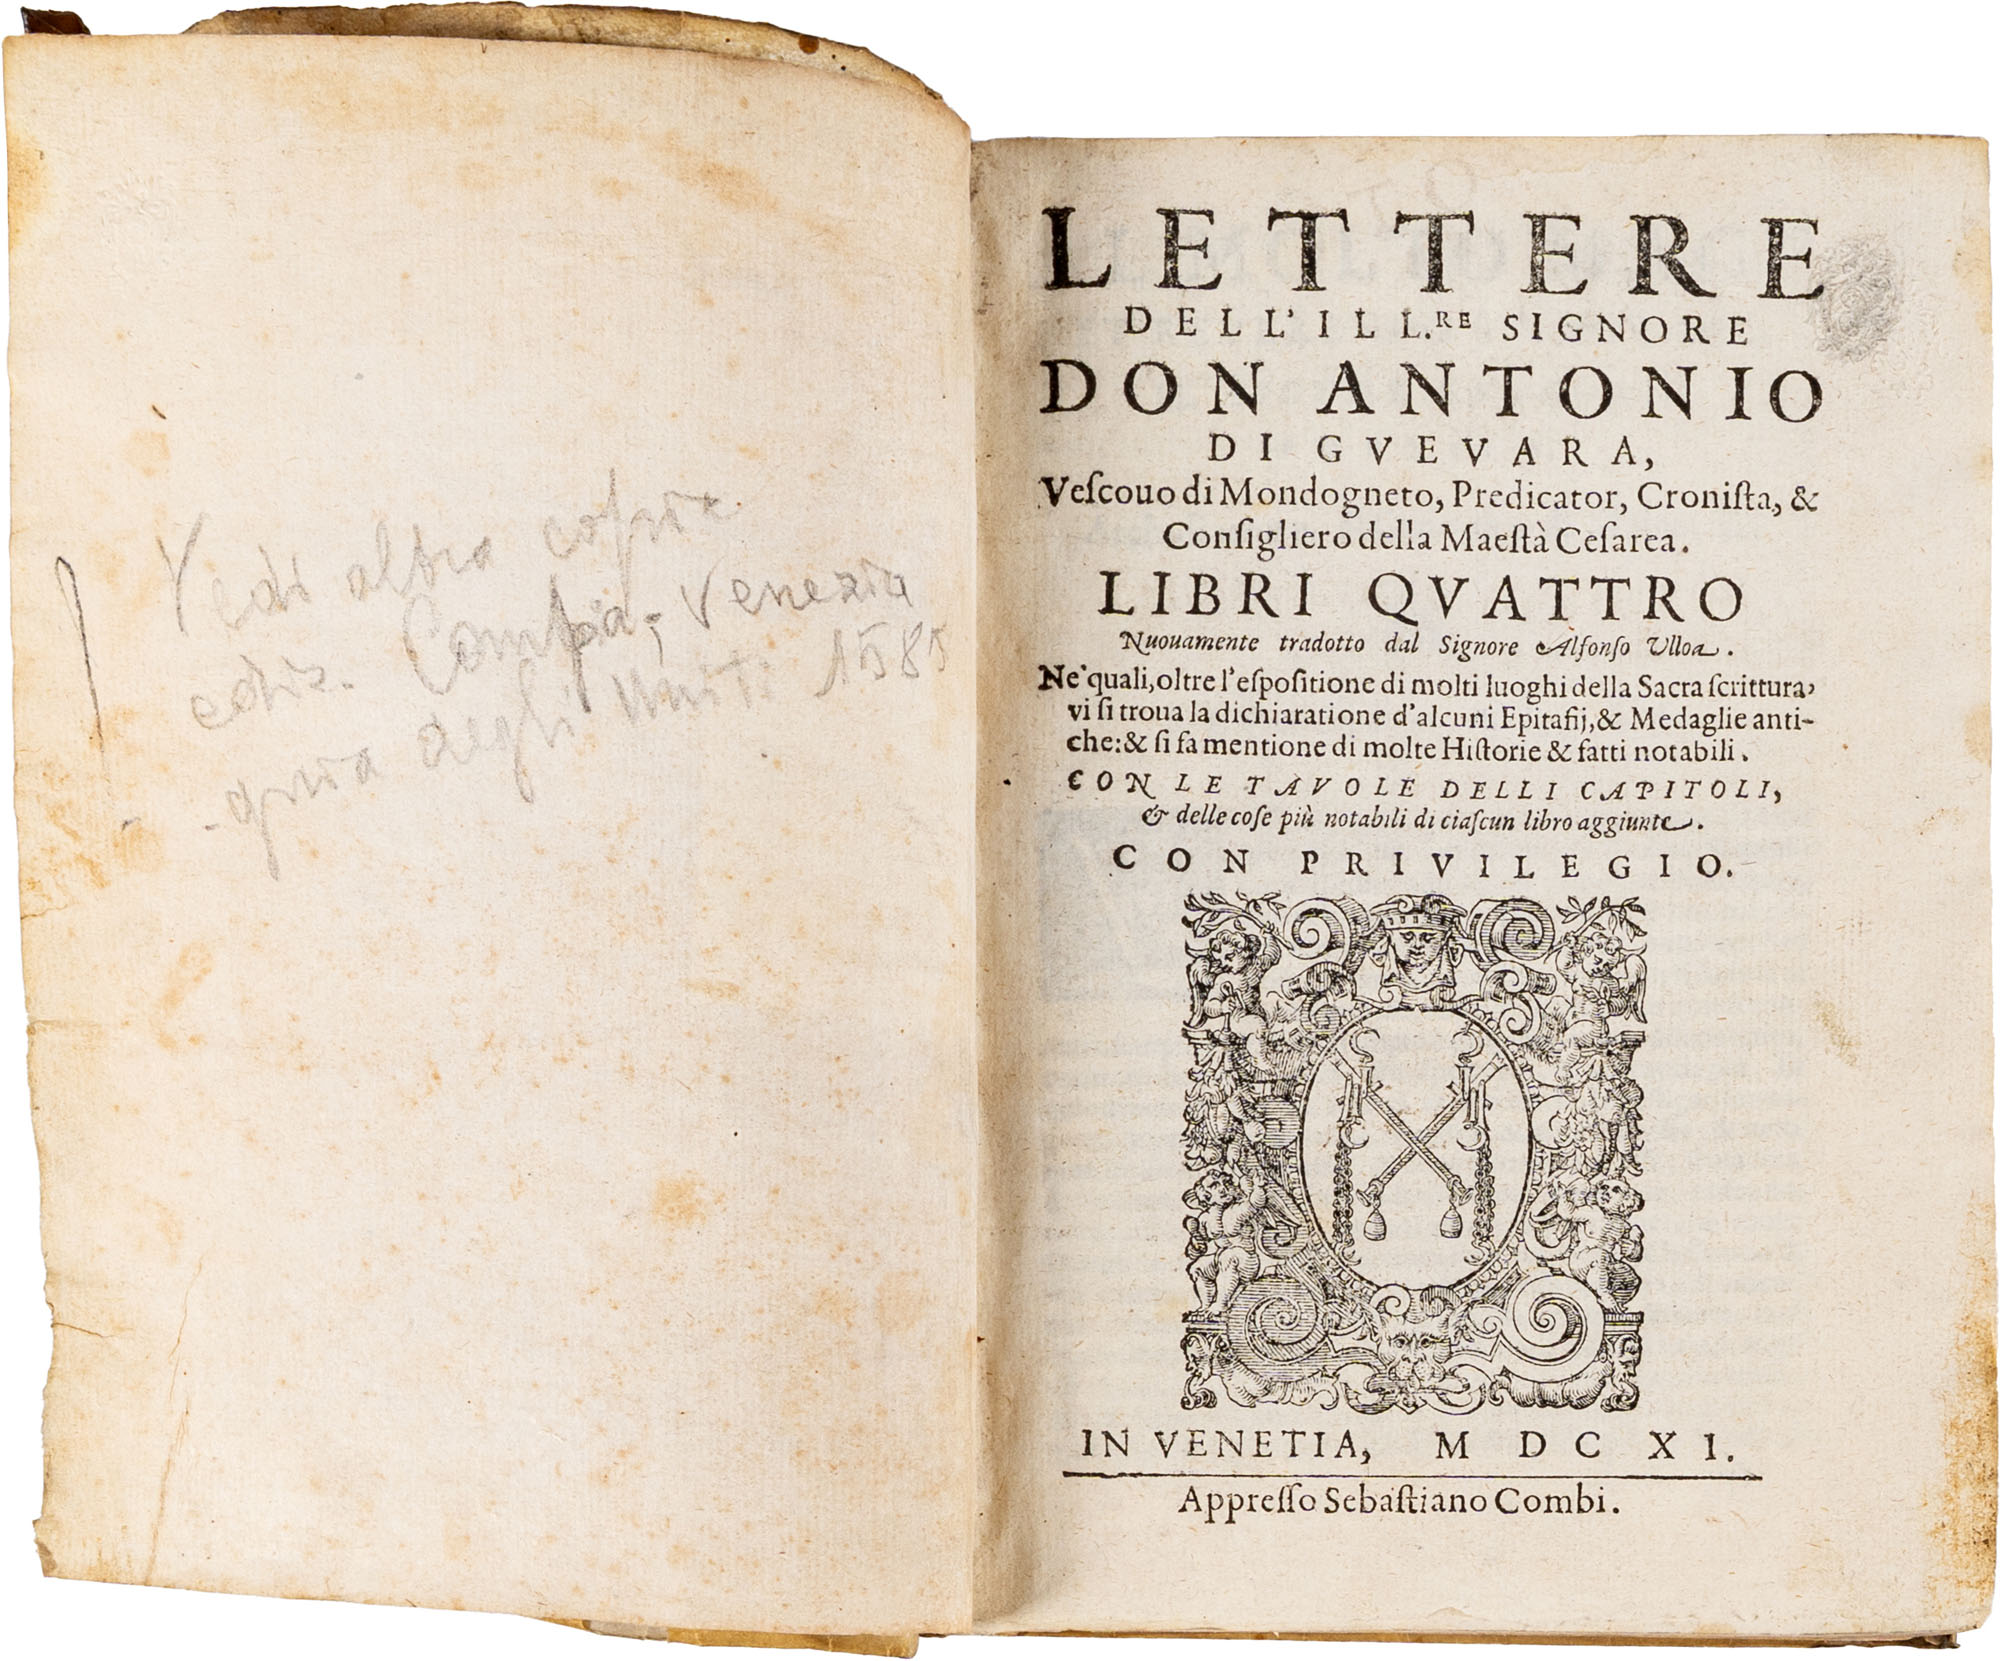 Vedi altra copia
ediz. Compa, Venezia
degli Uniti 1585
LETTERE
DELL'ILL.RE SIGNORE
DON ANTONIO
DI GVEVARA,
Veſcouo di Mondogneto, Predicator, Croniſta, &
Conſigliero della Maeſtà Ceſarea.
LIBRI QVATTRO
Nuouamente tradotto dal Signore Alfonſo Vlloa.
Ne'quali, oltre l'eſpoſitione di molti luoghi della Sacra ſcrittura,
vi ſi troua la dichiaratione d'alcuni Epitafij, & Medaglie anti-
che: & ſi fa mentione di molte Hiſtorie & fatti notabili.
CON LE TAVOLE DELLI CAPITOLI,
& delle coſe più notabili di ciaſcun libro aggiunte.
CON PRIVILEGIO.
IN VENETIA, M D C XI.
Appreſſo Sebaſtiano Combi.